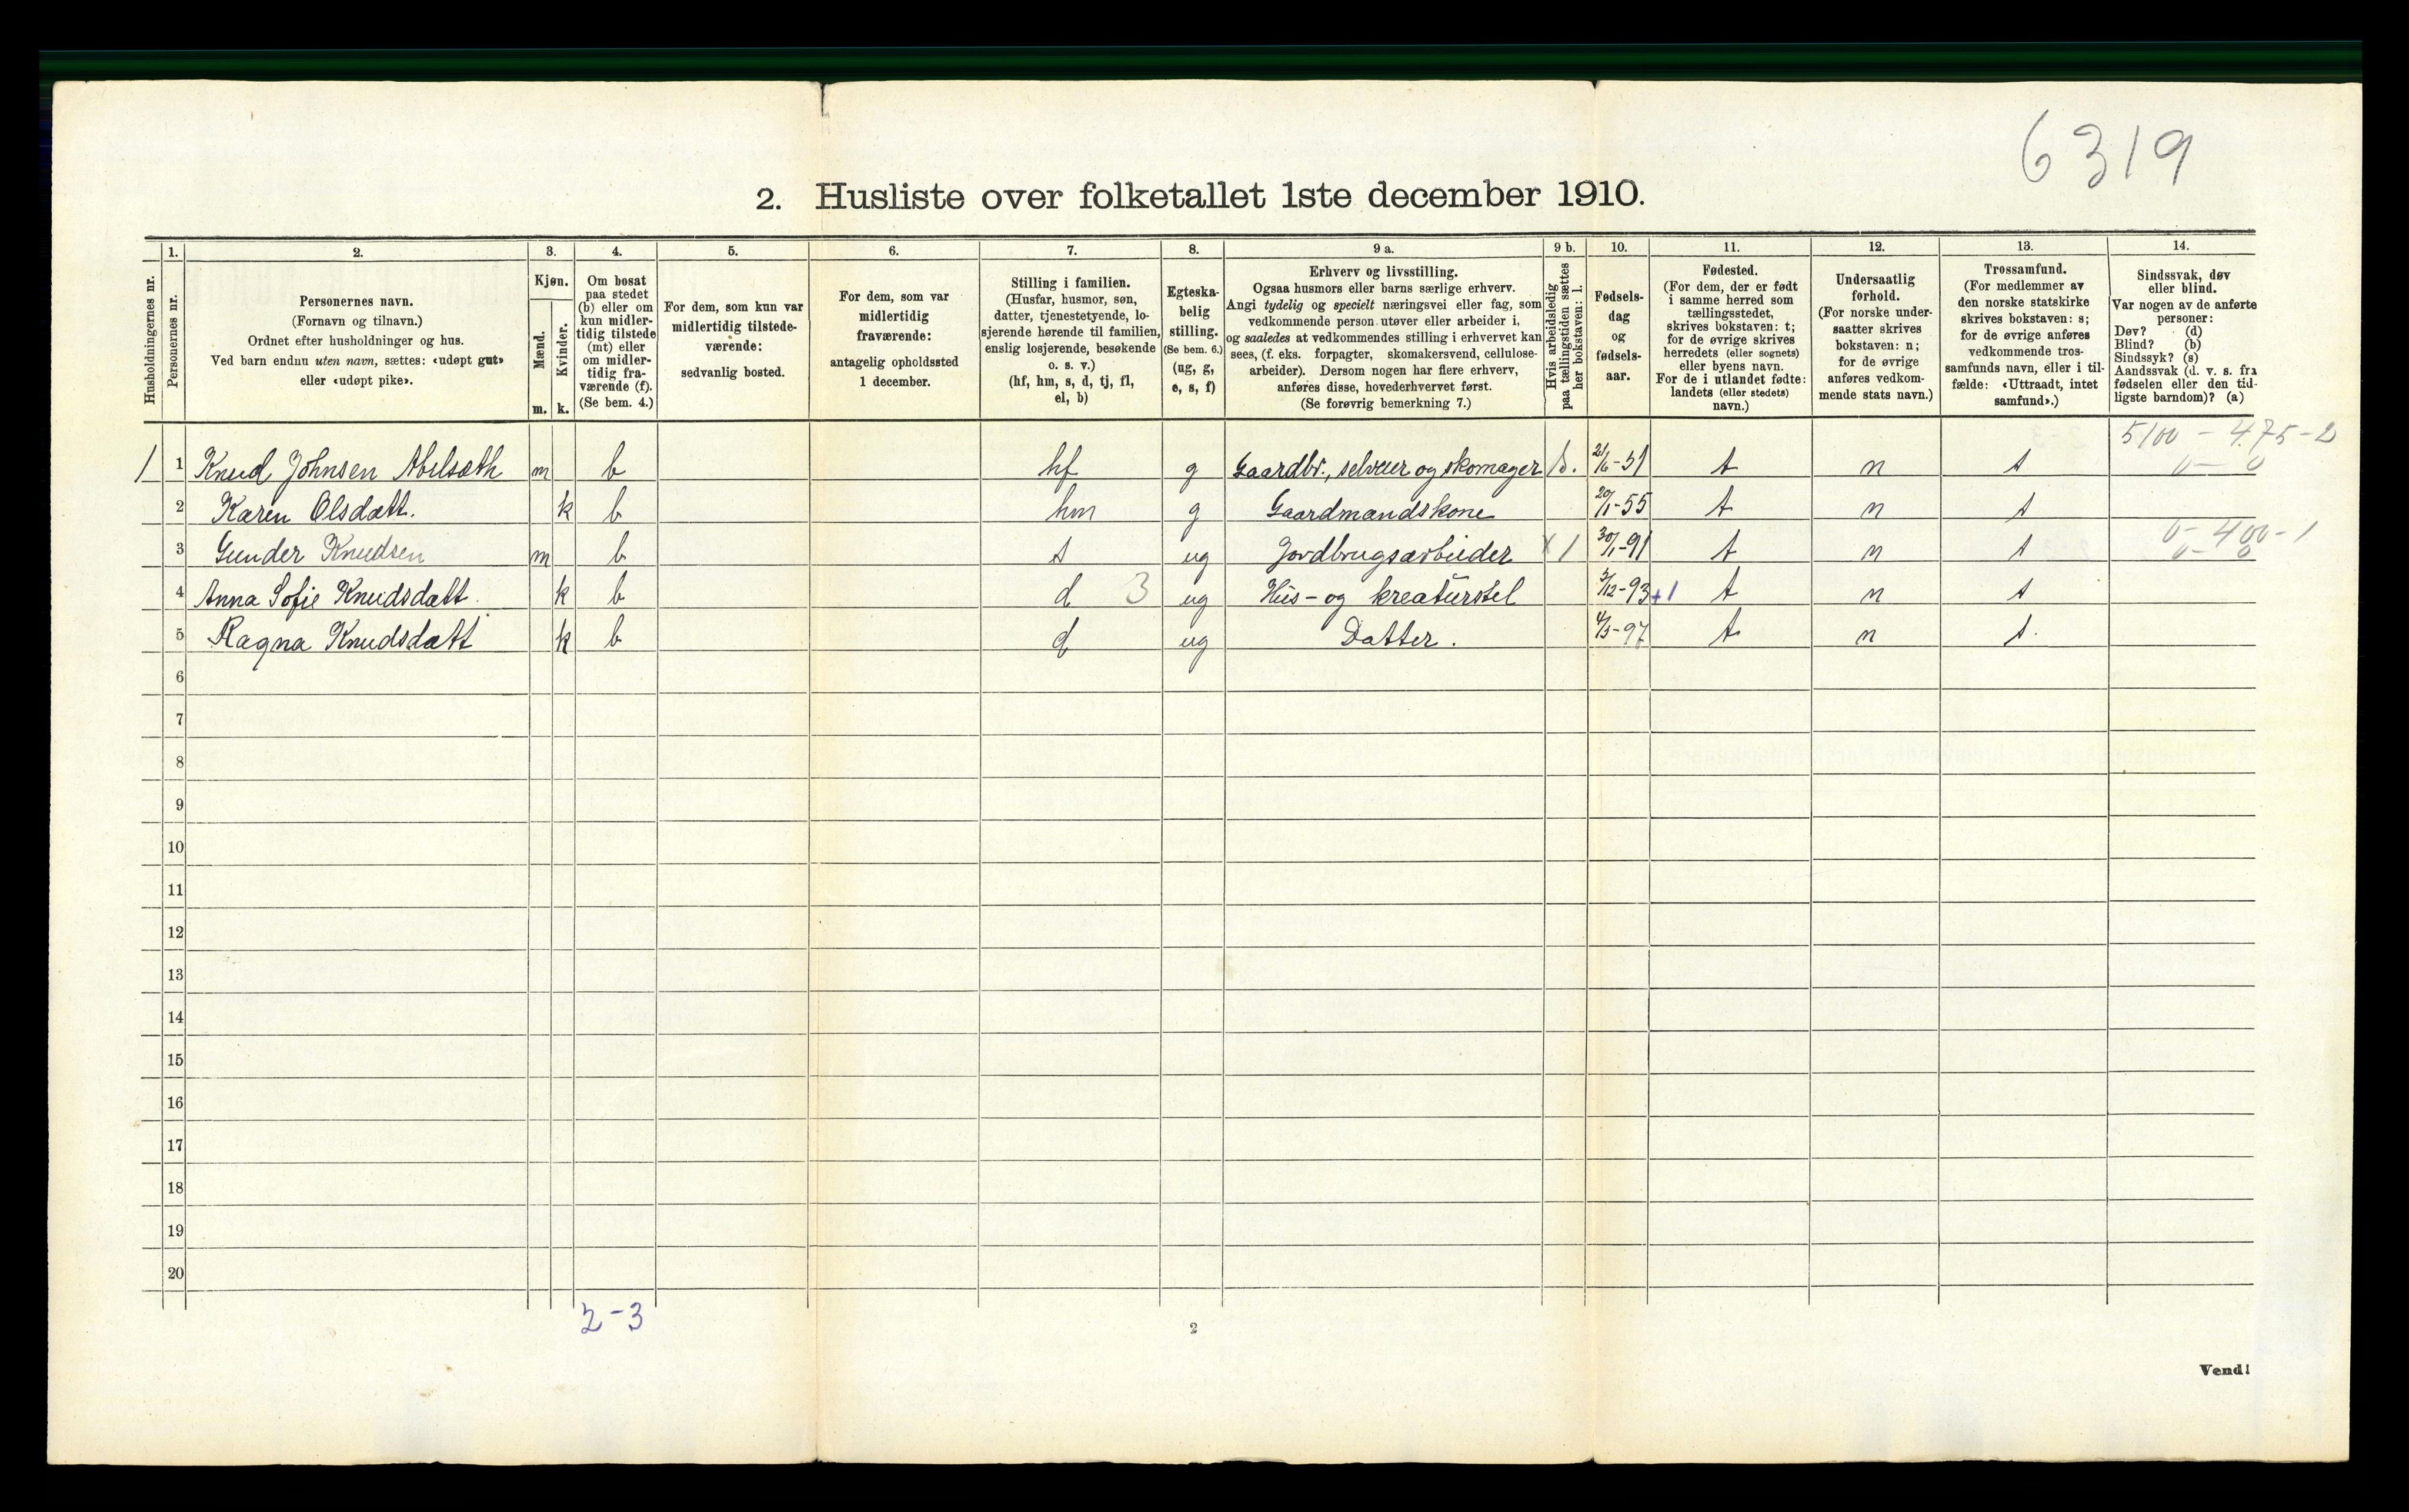 6319
2. Husliste over folketallet 1ste december 1910.
Husholdningernes nr.
1. Personernes nr.
2. Personernes navn.
(Fornavn og tilnavn.)
Ordnet efter husholdninger og hus.
Ved barn endnu uten navn, sættes: «udøpt gut»
eller «udøpt pike».
3. Kjøn.
Mænd. m.
Kvinder. k.
4. Om bosat
paa stedet
(b) eller om
kun midler-
tidig tilstede
(mt) eller
om midler-
tidig fra-
værende (f).
(Se bem. 4.)
5. For dem, som kun var
midlertidig tilstede-
værende:
sedvanlig bosted.
6. For dem, som var
midlertidig
fraværende:
antagelig opholdssted
1 december.
7. Stilling i familien.
(Husfar, husmor, søn,
datter, tjenestetyende, lo-
sjerende hørende til familien,
enslig losjerende, besøkende
o. s. v.)
(hf, hm, s, d, tj, fl,
el, b)
8. Egteska-
belig
stilling.
(Se bem. 6.)
(ug, g,
e, s, f)
9 a. Erhverv og livsstilling.
Ogsaa husmors eller barns særlige erhverv.
Angi tydelig og specielt næringsvei eller fag, som
vedkommende person utøver eller arbeider i,
og saaledes at vedkommendes stilling i erhvervet kan
sees, (f. eks. forpagter, skomakersvend, cellulose-
arbeider). Dersom nogen har flere erhverv,
anføres disse, hovederhvervet først.
(Se forøvrig bemerkning 7.)
9 b. Hvis arbeidsledig
paa tællingstiden sættes
her bokstaven: l.
10. Fødsels-
dag
og
fødsels-
aar.
11. Fødested.
(For dem, der er født
i samme herred som
tællingsstedet,
skrives bokstaven: t;
for de øvrige skrives
herredets (eller sognets)
eller byens navn.
For de i utlandet fødte:
landets (eller stedets)
navn.)
12. Undersaatlig
forhold.
(For norske under-
saatter skrives
bokstaven: n;
for de øvrige
anføres vedkom-
mende stats navn.)
13. Trossamfund.
(For medlemmer av
den norske statskirke
skrives bokstaven: s;
for de øvrige anføres
vedkommende tros-
samfunds navn, eller i til-
fælde: «Uttraadt, intet
samfund».)
14. Sindssvak, døv
eller blind.
Var nogen av de anførte
personer:
Døv? (d)
Blind? (b)
Sindssyk? (s)
Aandssvak (d. v. s. fra
fødselen eller den tid-
ligste barndom)? (a)
5100 - 475 - 2
1 1 Knud Johnsen Abelsæth m b hf g Gaardbr., selveier og skomager 21/6-51 t n s 0 - 0
2 Karen Olsdatt. k b hm g Gaardmandskone 20/1-55 t n s
0 - 400 - 1
3 Gunder Knudsen m b s ug Jordbrugsarbeider x 1 30/1-91 t n s 0 - 0
4 Anna Sofie Knudsdatt. k b d 3 ug Hus- og kreaturstel 3/12-93 +1 t n s
5 Ragna Knudsdatt k b d ug Datter. 4/3-97 t n s.
6
7
8
9
10
11
12
13
14
15
16
17
18
19
20
2-3
2
Vend!